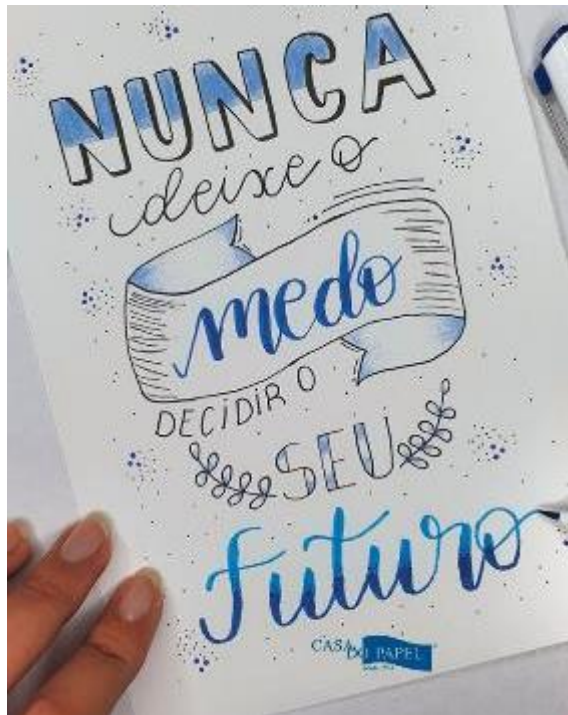 NUNCA
deixe o
medo
DECIDIR O
SEU
Futuro
CASA DO PAPEL